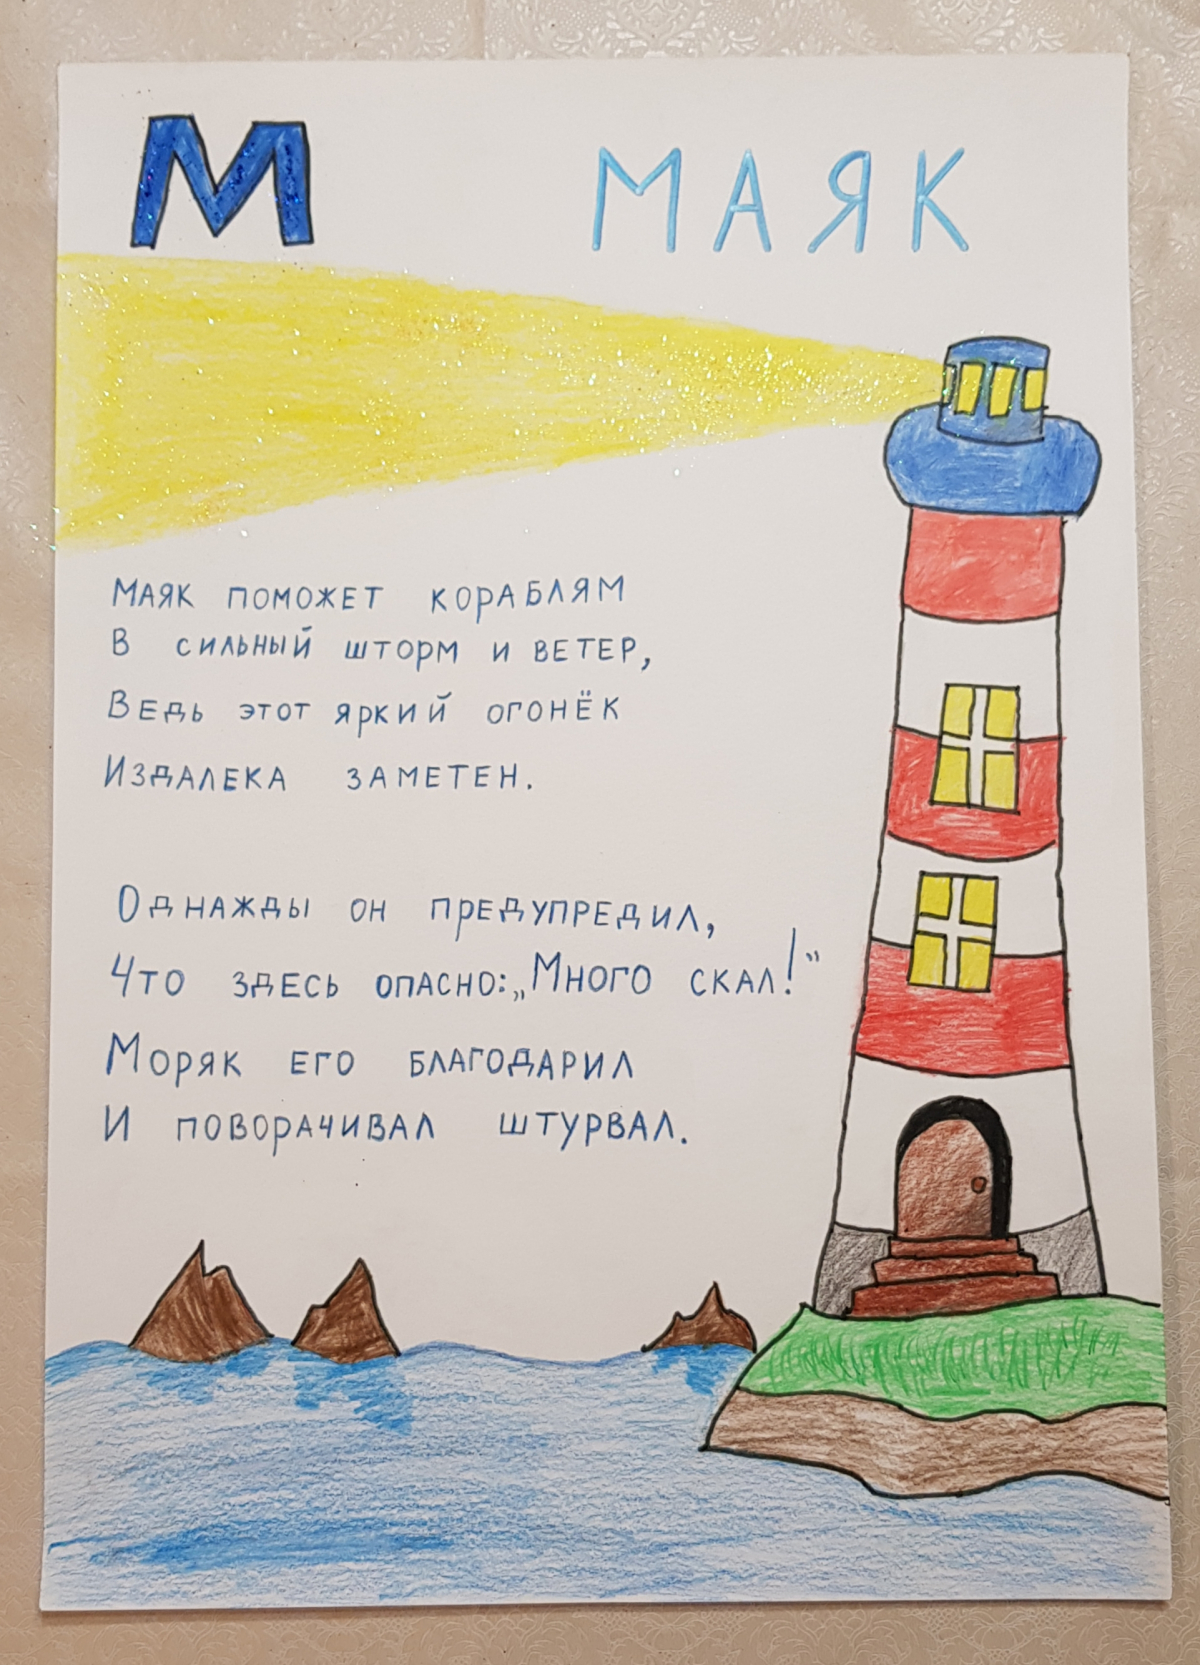 М
МАЯК
Маяк поможет кораблям
В сильный шторм и ветер,
Ведь этот яркий огонёк
Издалека заметен.
Однажды он предупредил,
Что здесь опасно: „Много скал!“
Моряк его благодарил
И поворачивал штурвал.